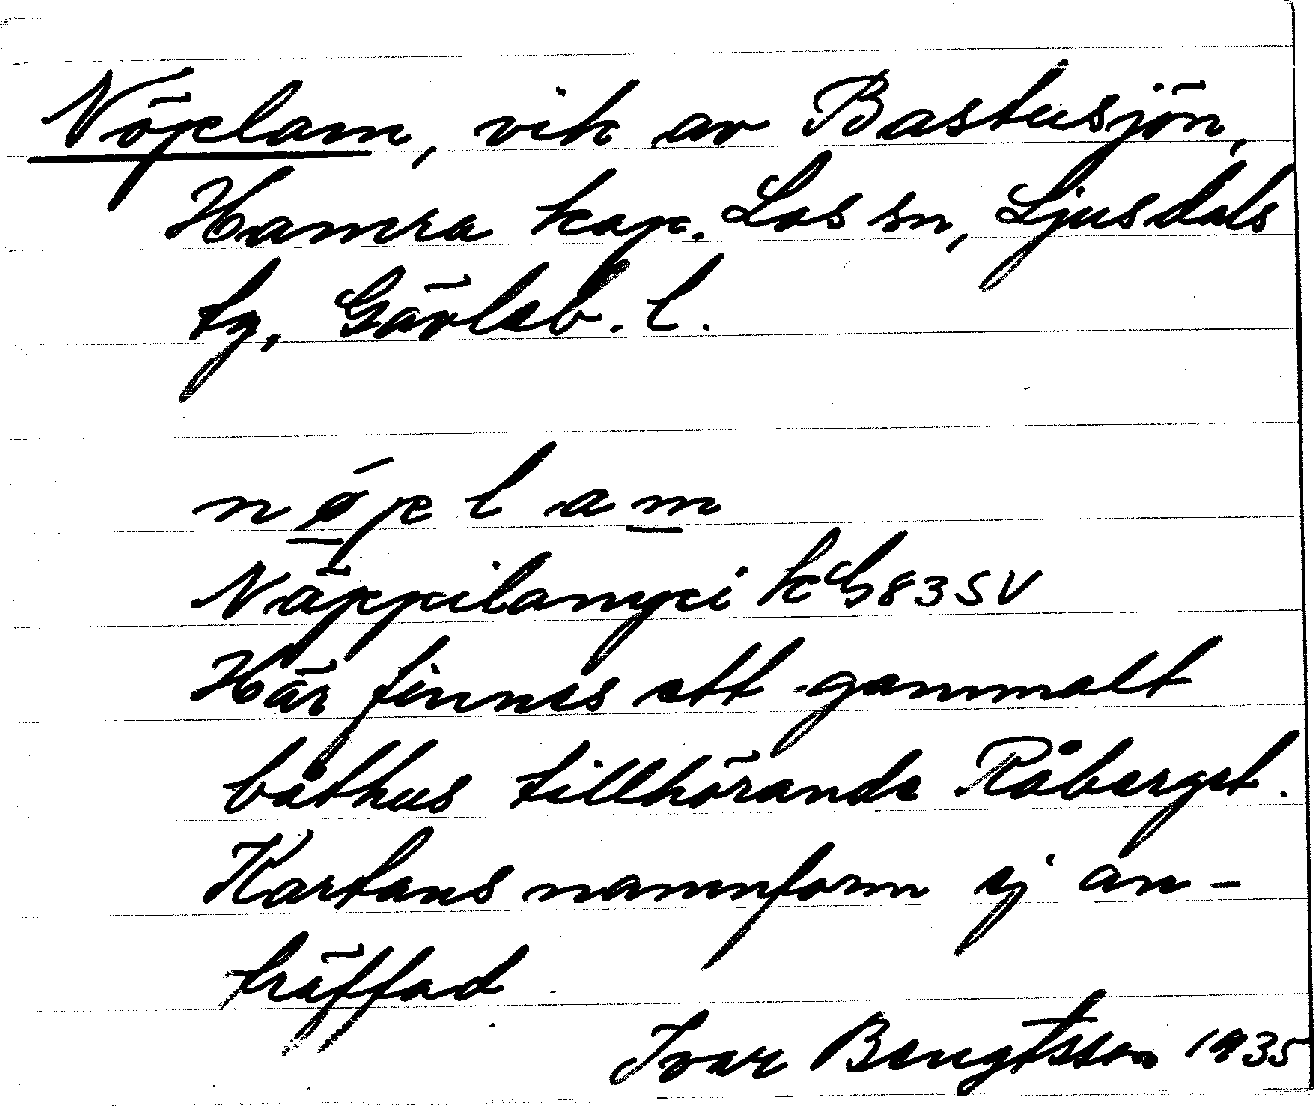 Nöplam, vik av Bastusjön,
Hamra kap. Los sn, Ljusdals
tg, Gävleb. l.
nǿ̱plam̱
Näppilampi kG83SV
Här finnes ett gammalt
båthus tillhörande Råberget.
Kartans namnform ej an-
träffad
Ivar Bengtsson 1935